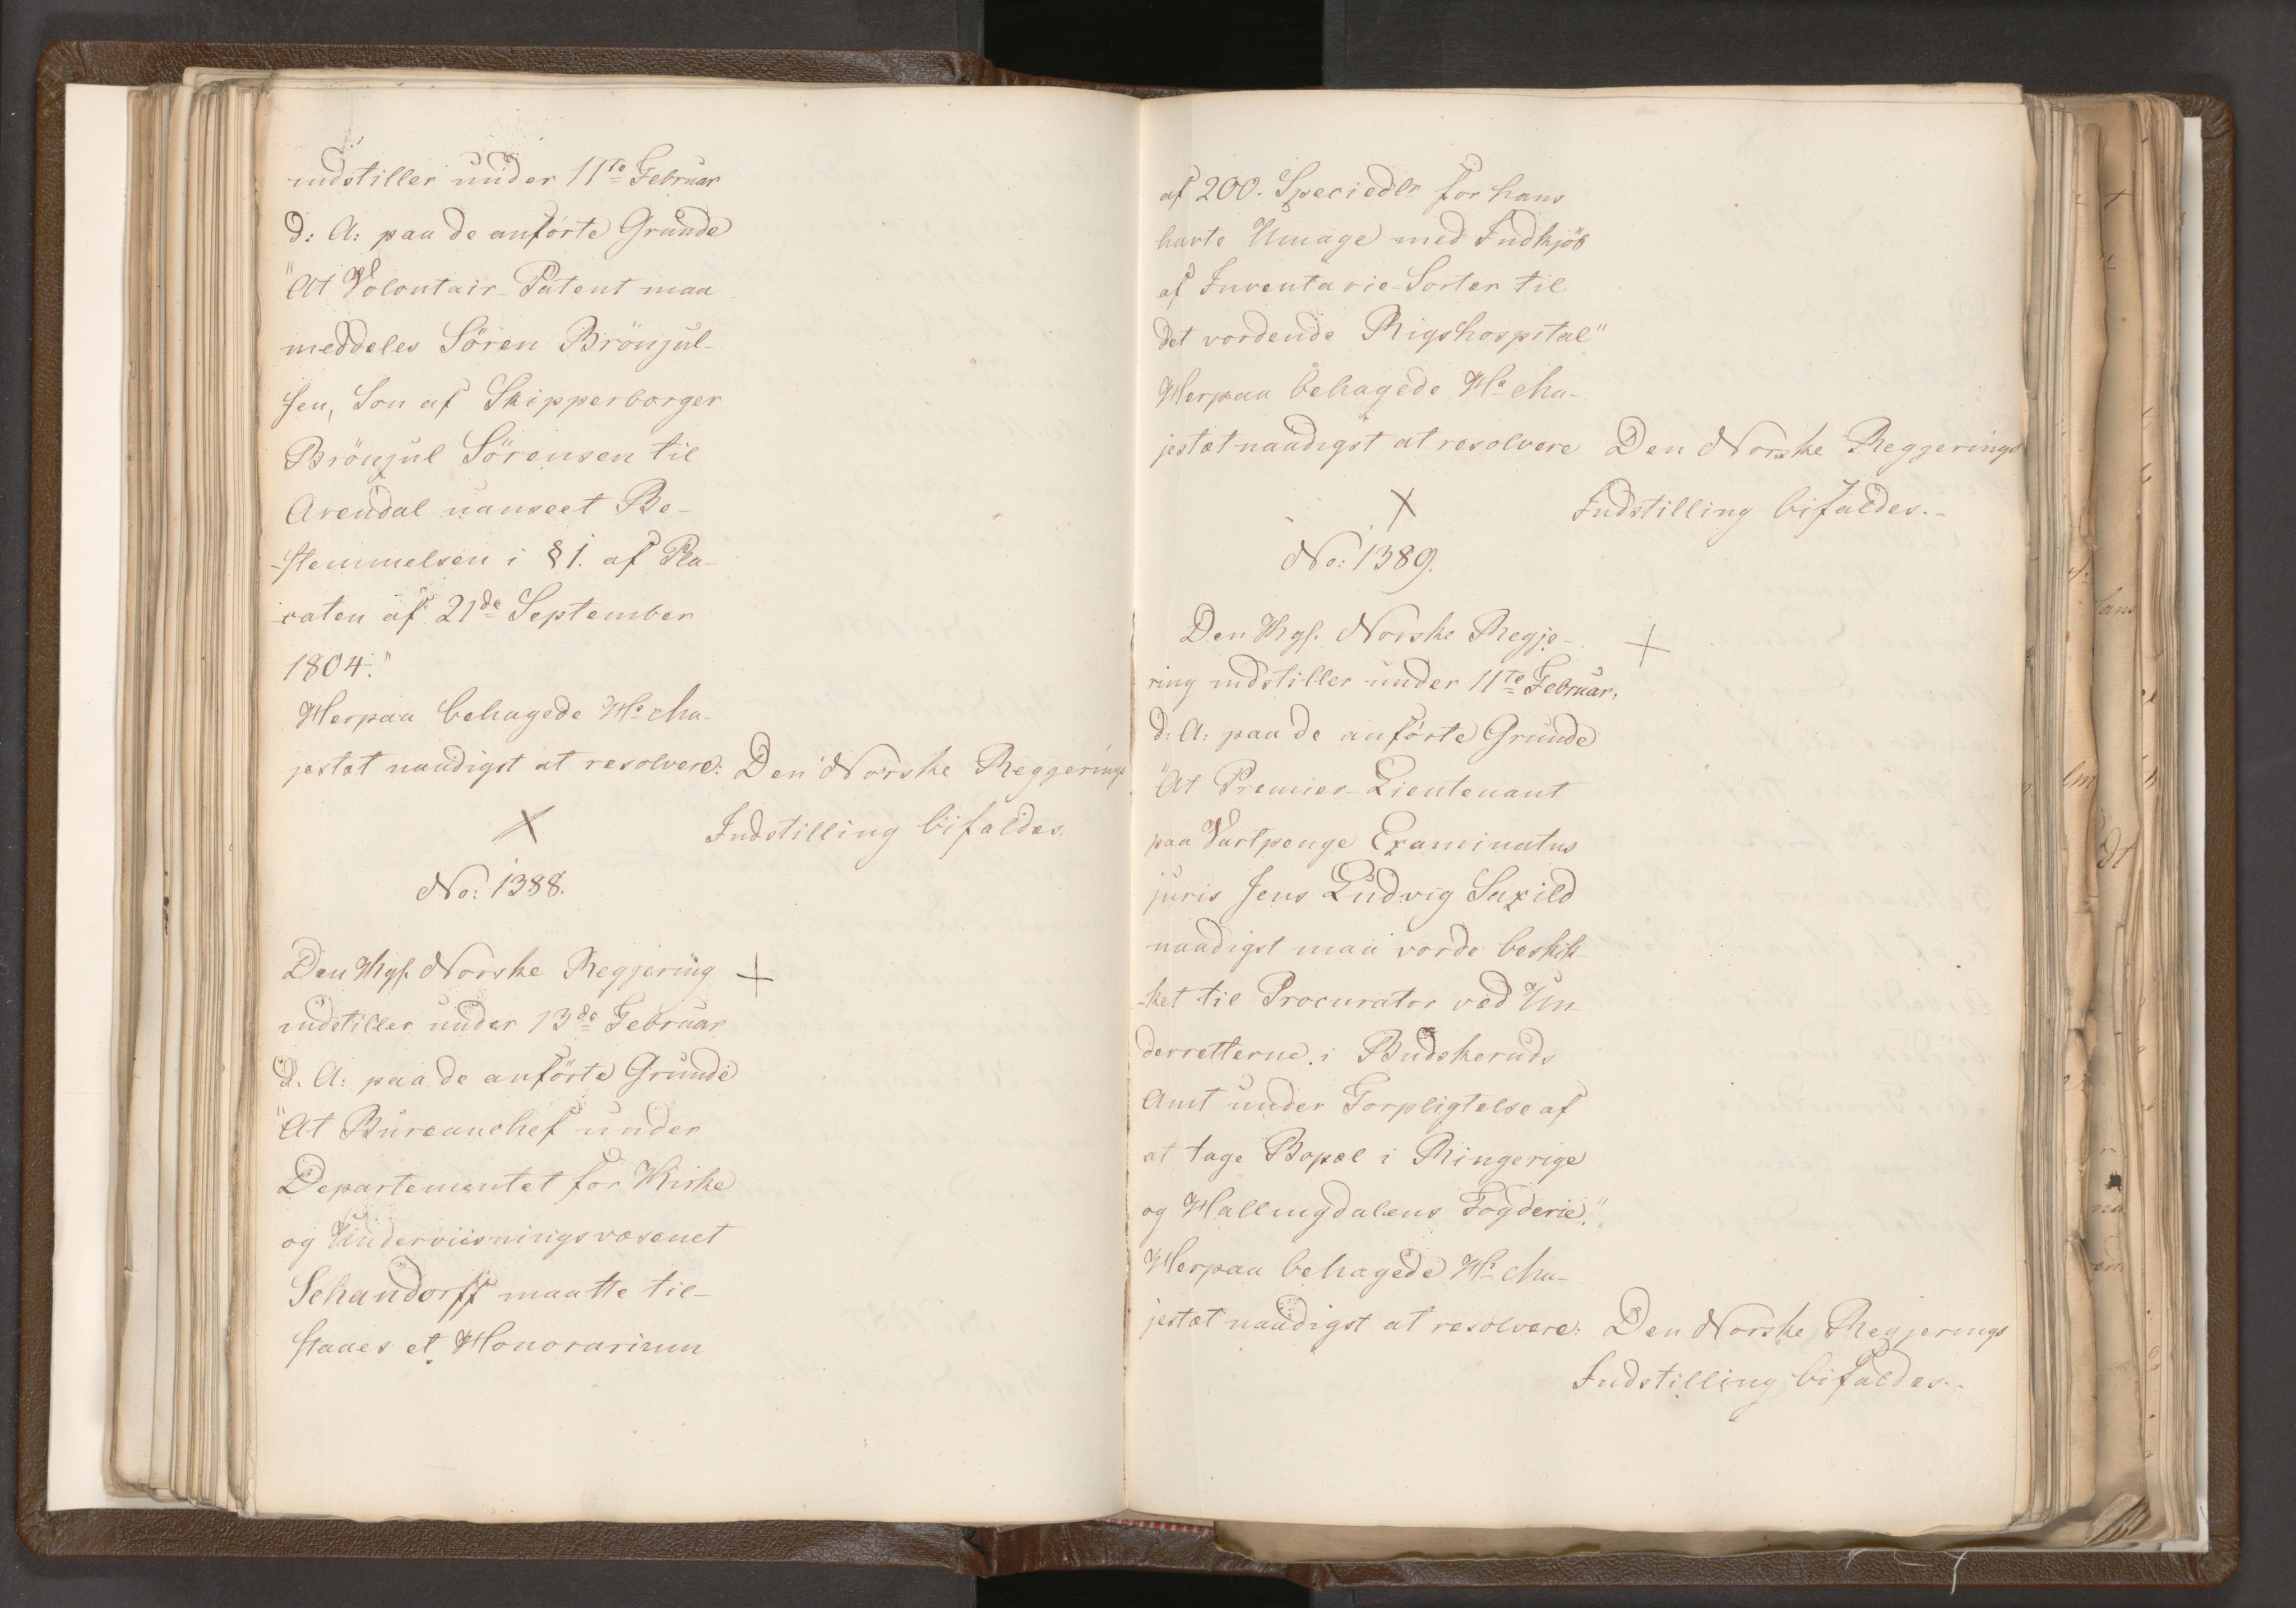 indstiller under 11te Februar
d: A: paa de anförte Grunde
"At Volontair-Patent maa
meddeles Sören Brönjul-
sen, Son af Skipperborger
Brönjul Sörensen til
Arendal uanseet Be-
-stemmelsen i § 1. af Pla-
-caten af 21de September
1804."
Herpaa behagede Hs Ma-
jestæt naadigst at resolvere: Den Norske Regjerings
Indstilling bifaldes.
X
No: 1388.
Den Kgl. Norske Regjering +
indstiller under 13de Februar
d. A: paa de anförte Grunde
"At Bureauchef under
Departementet for Kirke
og Underviisningsvæsenet
Schandorff maatte til-
staaes et Honorarium
af 200. Speciedlr for hans
havte Umage med Indkjöb
af Inventarie-Sorter til
det vordende Rigshospital"
Herpaa behagede Hs Ma-
jestæt naadigst at resolvere Den Norske Regjerings
Indstilling bifaldes.-
X
No: 1389.
Den Kgl. Norske Regje- +
ring indstiller under 11te Februar.
d: A: paa de anförte Grunde
"At Premier-Lieutenant
paa Vartpenge Examinatus
juris Jens Ludvig Saxild
naadigst maa vorde beskik-
-ket til Procurator ved Un-
derretterne i Budskeruds
Amt under Forpligtelse af
at tage Bopæl i Ringerige
og Hallingdalens Fogderie."
Herpaa behagede Hs Ma-
jestæt naadigst at resolvere: Den Norske Regjerings
Indstilling bifaldes.-